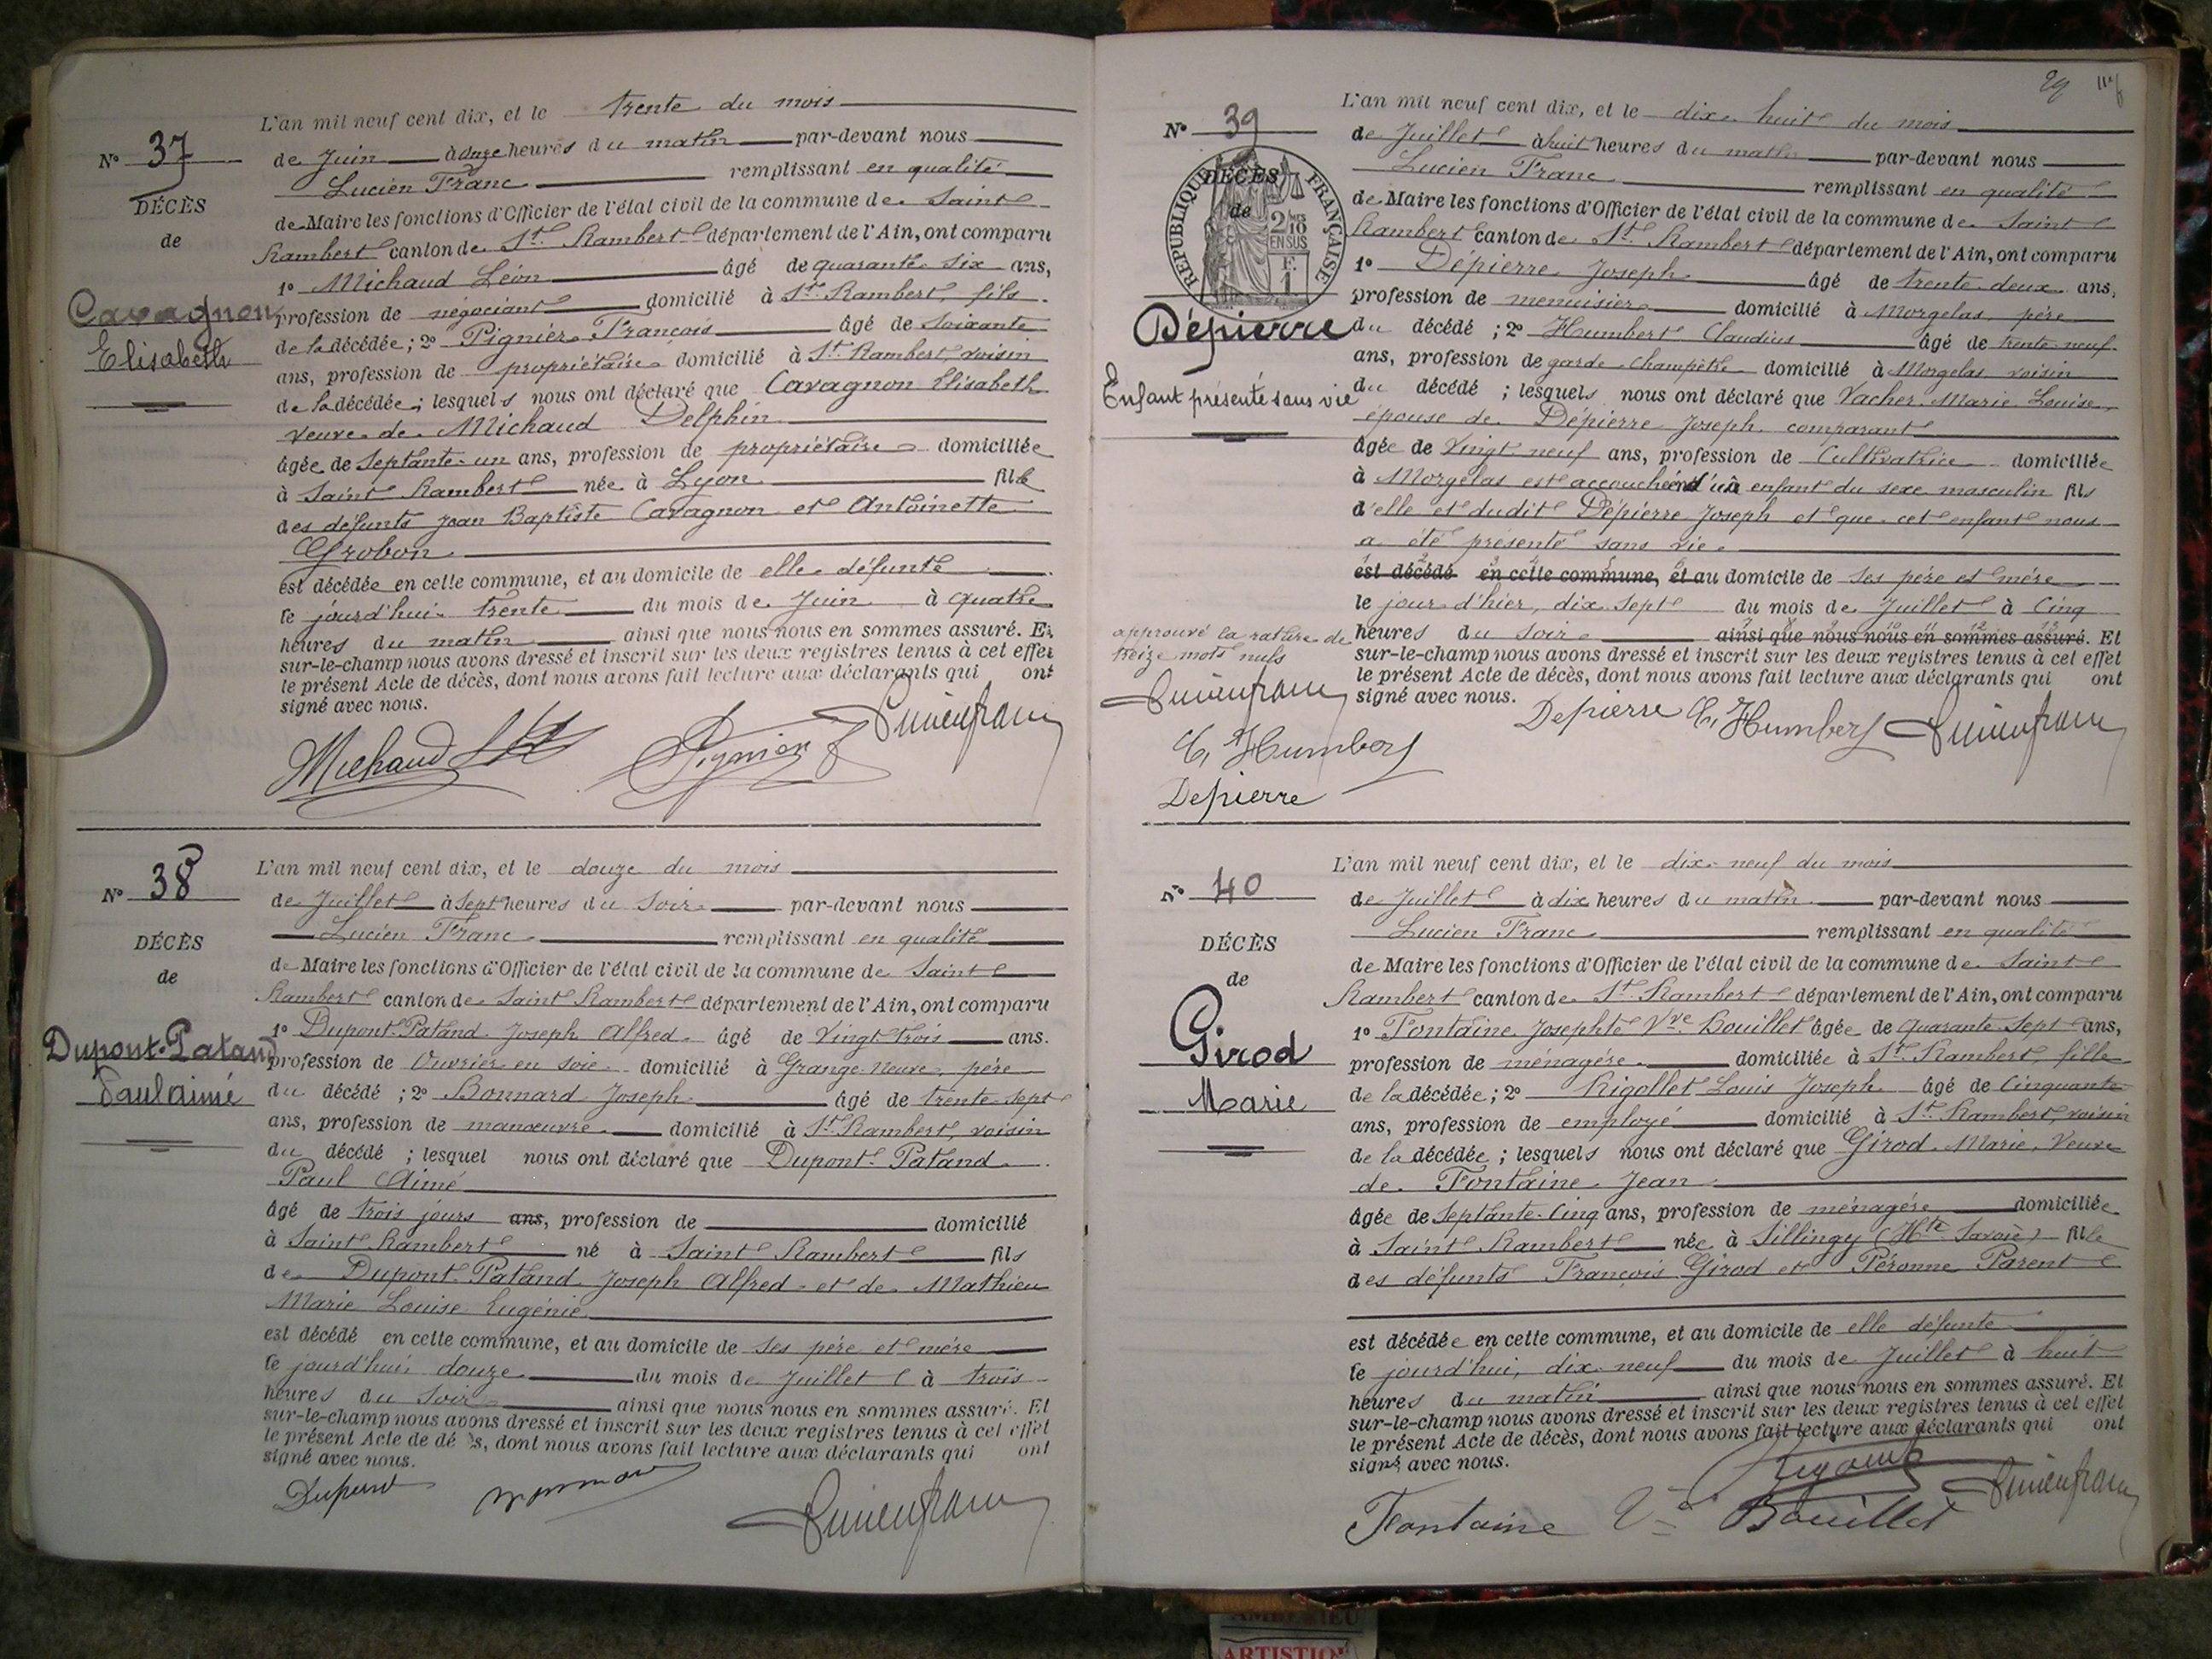 N° 37
DÉCÈS
de
Cavagnon
Elisabeth
L'an mil neuf cent dix, et le trente du mois
de Juin à onze heures du matin par-devant nous
Lucien Franc remplissant en qualité
de Maire les fonctions d'Officier de l'état civil de la commune de Saint
Rambert canton de St. Rambert département de l'Ain, ont comparu
1° Michaud Léon âgé de quarante six ans,
profession de négociant domicilié à St. Rambert, fils
de la décédée ; 2° Pignier François âgé de soixante
ans, profession de propriétaire domicilié à St. Rambert voisin
de la décédée ; lesquels nous ont déclaré que Cavagnon Elisabeth
veuve de Michaud Delphin
âgée de septante-un ans, profession de propriétaire domiciliée
à Saint Rambert née à Lyon fille
des défunts Jean Baptiste Cavagnon et Antoinette
Grobon
est décédée en cette commune, et au domicile de elle défunte
le jourd'hui trente du mois de Juin à quatre
heures du matin ainsi que nous nous en sommes assuré. Et
sur-le-champ nous avons dressé et inscrit sur les deux registres tenus à cet effet
le présent Acte de décès, dont nous avons fait lecture aux déclarants qui ont
signé avec nous.
Michaud Pignier Lucien franc
N° 38
DÉCÈS
de
Dupont-Patand
Paul aimé
L'an mil neuf cent dix, et le douze du mois
de Juillet à sept heures du soir par-devant nous
Lucien Franc remplissant en qualité
de Maire les fonctions d'Officier de l'état civil de la commune de Saint
Rambert canton de Saint Rambert département de l'Ain, ont comparu
1° Dupont-Patand Joseph Alfred âgé de vingt trois ans.
profession de Ouvrier en soie domicilié à Grange Neuve, père
du décédé ; 2° Bonnard Joseph âgé de trente sept
ans, profession de manœuvre domicilié à St. Rambert, voisin
du décédé ; lesquel nous ont déclaré que Dupont-Patand
Paul Aimé
âgé de trois jours ans, profession de domicilié
à Saint Rambert né à Saint Rambert fils
de Dupont-Patand Joseph Alfred et de Mathieu
Marie Louise Eugénie
est décédé en cette commune, et au domicile de ses père et mère
le jourd'hui douze du mois de Juillet à trois
heures du soir ainsi que nous nous en sommes assuré. Et
sur-le-champ nous avons dressé et inscrit sur les deux registres tenus à cet effet
le présent Acte de décès, dont nous avons fait lecture aux déclarants qui ont
signé avec nous.
Dupont Lucien franc
29
N° 39
DÉCÈS
de
RÉPUBLIQUE FRANÇAISE
2/10 EN SUS
F. 1
Dépierre
Enfant présenté sans vie
L'an mil neuf cent dix, et le dix huit du mois
de Juillet à huit heures du matin par-devant nous
Lucien Franc remplissant en qualité
de Maire les fonctions d'Officier de l'état civil de la commune de Saint
Rambert canton de St. Rambert département de l'Ain, ont comparu
1° Dépierre Joseph âgé de trente-deux ans,
profession de menuisier domicilié à Morgelas, père
du décédé ; 2° Humbert Claudius âgé de trente-neuf
ans, profession de garde champêtre domicilié à Morgelas voisin
du décédé ; lesquels nous ont déclaré que Vacher Marie Louise
épouse de Dépierre Joseph comparant
âgée de vingt neuf ans, profession de Cultivatrice domiciliée
à Morgelas est accouchée d'un enfant du sexe masculin fils
d'elle et dudit Dépierre Joseph et que cet enfant nous
a été présenté sans vie
est décédé en cette commune, et au domicile de ses père et mère
le jour d'hier, dix sept du mois de Juillet à cinq
heures du soir ainsi que nous nous en sommes assuré. Et
sur-le-champ nous avons dressé et inscrit sur les deux registres tenus à cet effet
le présent Acte de décès, dont nous avons fait lecture aux déclarants qui ont
signé avec nous.
approuvé la rature de
treize mots nuls
Lucien franc
C. Humbert
Depierre
Depierre C. Humbert Lucien franc
N° 40
DÉCÈS
de
Girod
Marie
L'an mil neuf cent dix, et le dix-neuf du mois
de Juillet à dix heures du matin par-devant nous
Lucien Franc remplissant en qualité
de Maire les fonctions d'Officier de l'état civil de la commune de Saint
Rambert canton de St. Rambert département de l'Ain, ont comparu
1° Fontaine Josephte Vve Bouillet âgée de quarante-sept ans,
profession de ménagère domiciliée à St. Rambert, fille
de la décédée ; 2° Rigollet Louis Joseph âgé de cinquante
ans, profession de employé domicilié à St. Rambert, voisin
de la décédée ; lesquels nous ont déclaré que Girod Marie, Veuve
de Fontaine Jean
âgée de septante-cinq ans, profession de ménagère domiciliée
à Saint Rambert née à Sillingy (Hte Savoie) fille
des défunts François Girod et Péronne Parent
est décédée en cette commune, et au domicile de elle défunte
le jourd'hui, dix-neuf du mois de Juillet à huit
heures du matin ainsi que nous nous en sommes assuré. Et
sur-le-champ nous avons dressé et inscrit sur les deux registres tenus à cet effet
le présent Acte de décès, dont nous avons fait lecture aux déclarants qui ont
signé avec nous.
Fontaine Ve Bouillet Lucien franc
AMBERIEU
ARTISTIQU